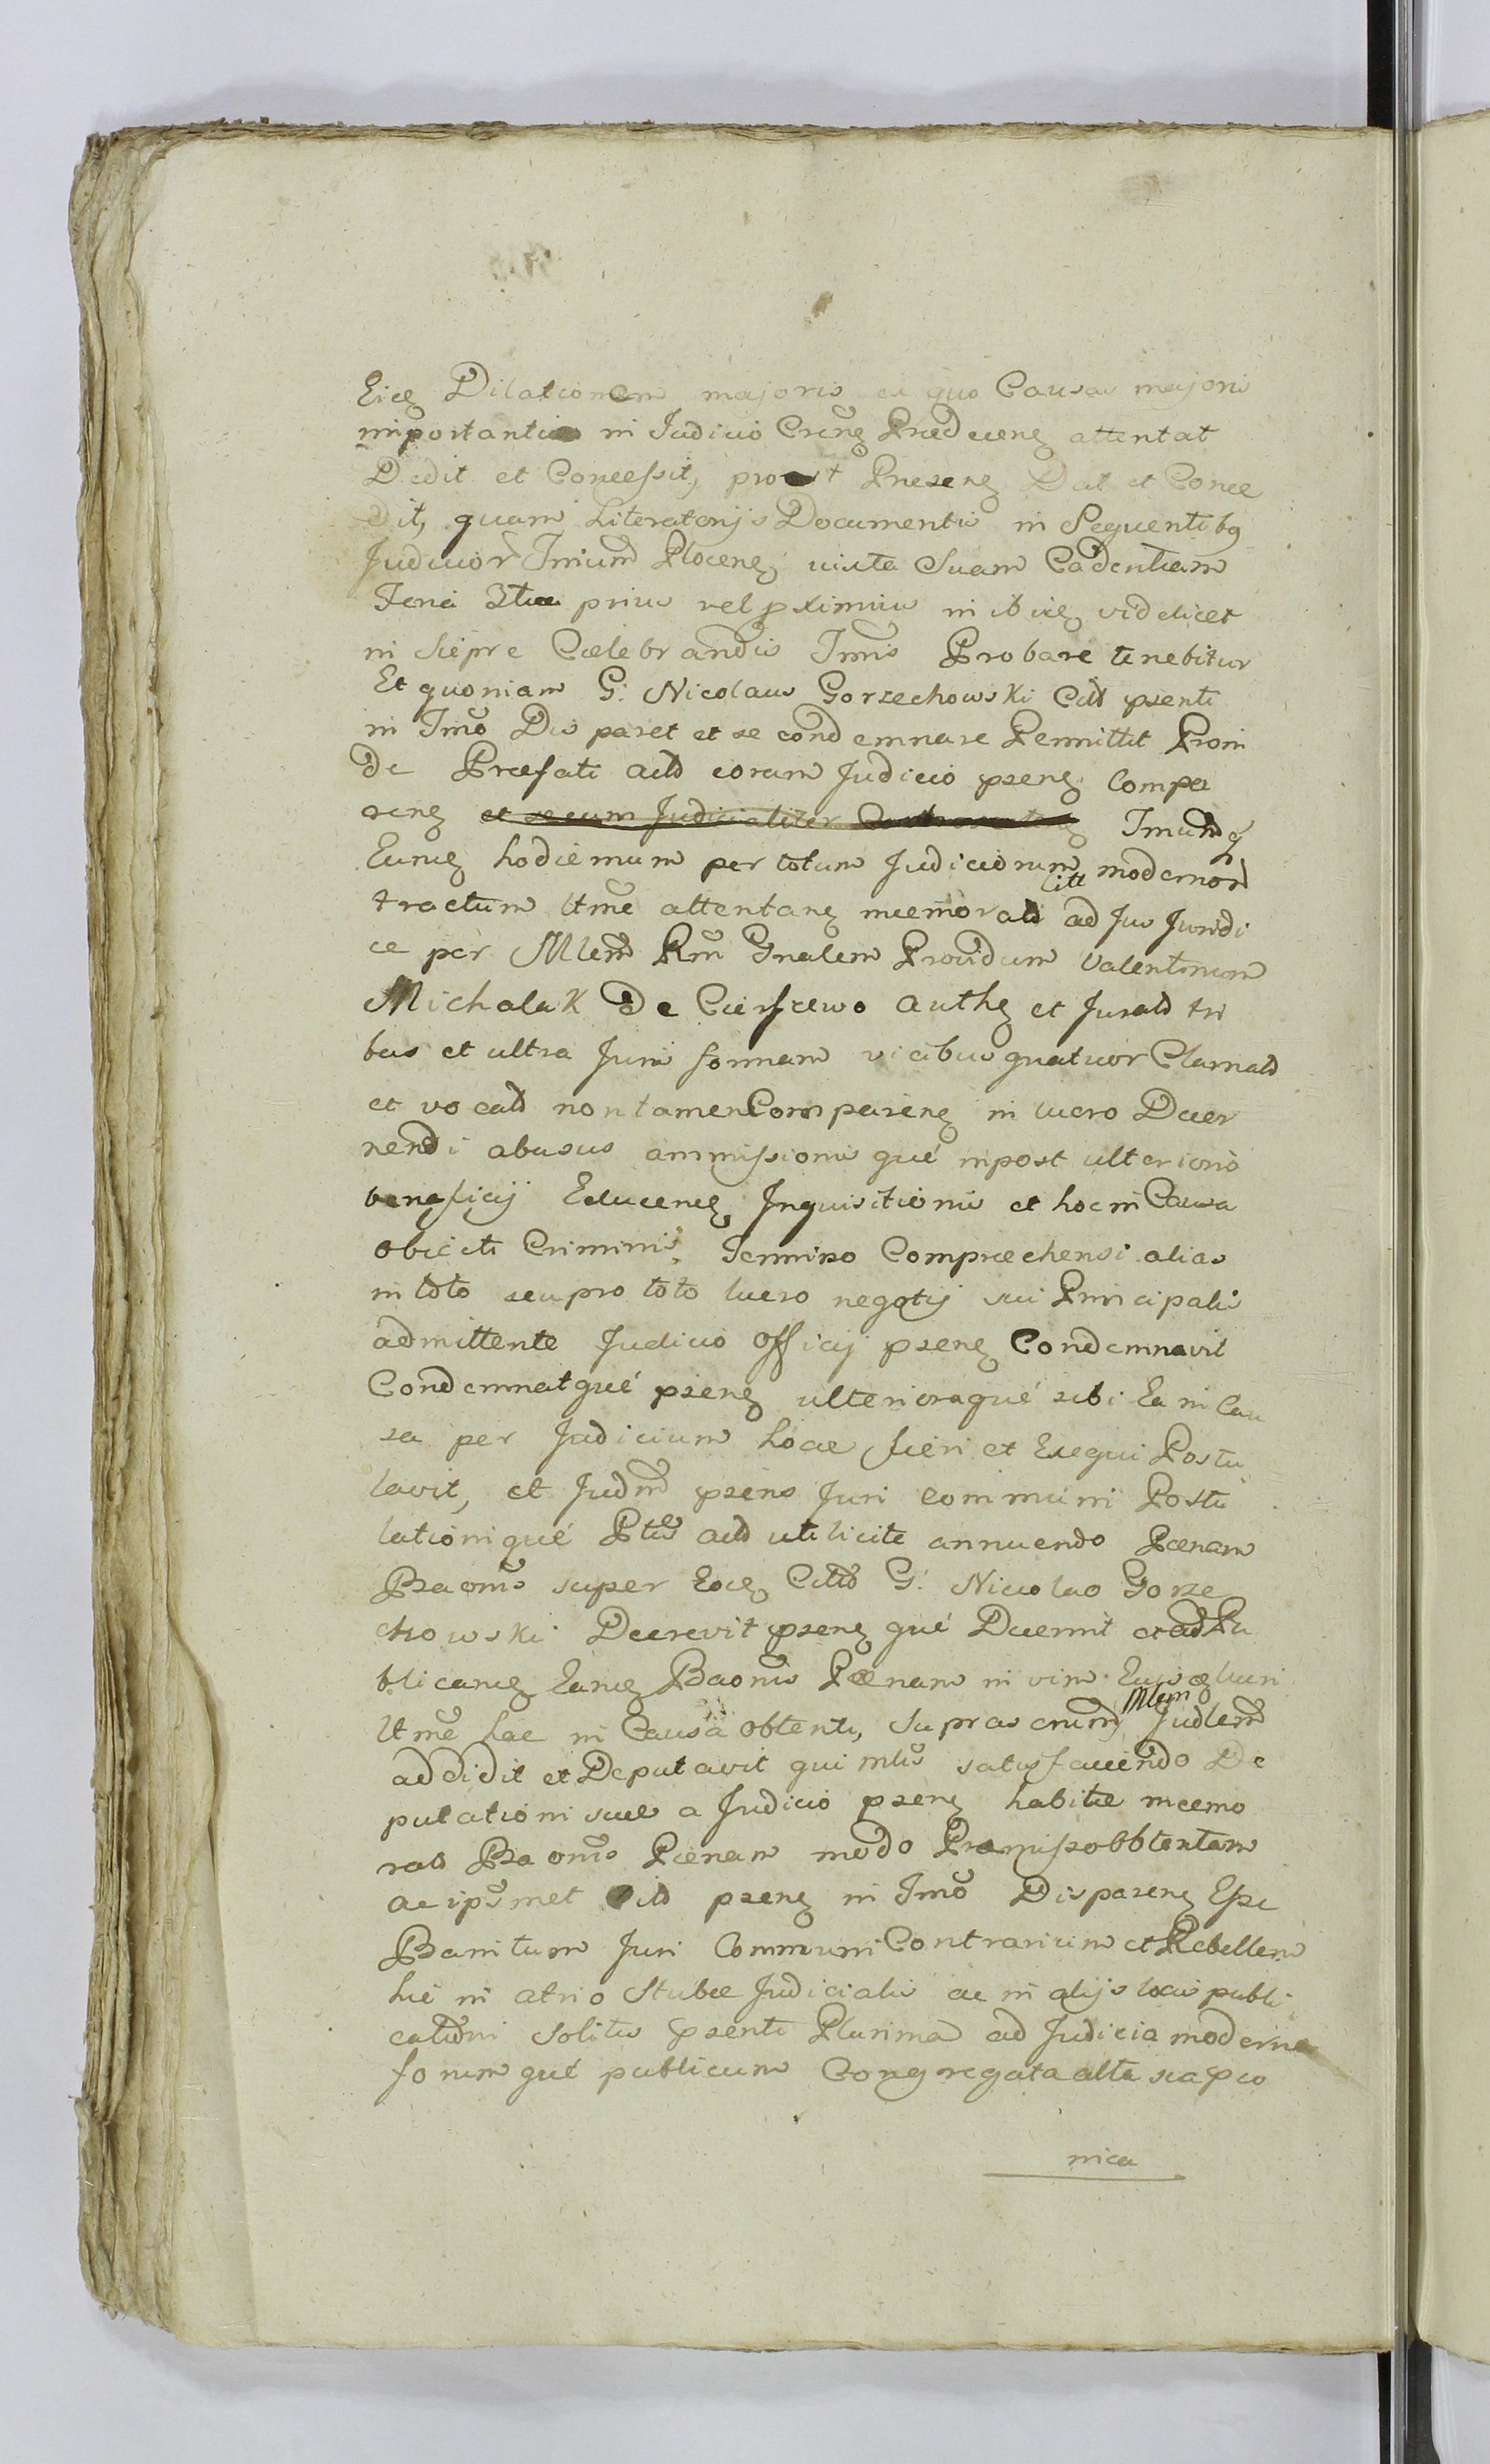 Eicę Dilationem majoris ex quo Causas majoris
importantiæ in Judicio Crenę Prædecenę attentat
Dedit et Concessit, prout Præsenę Dat et Conce
dit, quam Literatorijs Documentis in Sequentibq
Judicior Trium Plocenę iuxta Suam Cadentiam
Feriæ 3tiæ prius vel pximius in ibicę videlicet
in Siepre Cælebrandis Tmis Probare tenebitur
Et quoniam G: Nicolaus Gorzechowski Citt psenti
in Tmo Dis paret et se condemnare Permittit Proin
de Præfati actt coram Judicio psenę Compa
renę et secum Judicialiter Tmumq
Eumcę hodiernum per totum Judiciorum modernor
tractum Utme attentanę mcemoratt Citt ad Jus Juridi
ce per Mlem Rm Gnalem Providum Valentinum
Michalak de Cierscewo authę et Juratt tri
bus et ultra Juris formam vicibus quatuor Clamatt
et vocatt non tamen Comparenę in lucro Decer
nendi abusus ammissionis quæ inpost ulterioris
beneficij Educenę Inquisitionis et hoc in Causa
obiecti Criminis Termino Compræhensi alias
in toto seu pro toto lucro negotij sui Principalis
admittente Judicio Officij psenę Condemnavit
Condemnatqué psenę ulterioraqué sibi Ea in Cau
sa per Judicium hocce fieri et Exequi Postu
lavit, et Judm psens Juri communi Postu
lationiqué Ptis actt uti licite annuendo Pænam
Baonis super Eocę Citto G: Nicolao Gorze
chowski Decrevit psenę qué Decernit et ad Pu
blicancę Eamcę Baonis Pænam in vim Lucri
Utme hac in Causa obtenti, Suprascrium Mlem Judlem
addidit et Deputavit qui mlis satisfaciendo De
putationi suæ a Judicio psenę habitæ mcemo
ratt Baonis Pænam modo Præmisso obtentam
ac ipsmet Citt psenę in Tmo Disparenę Esse
Banitum Juri Communi Contrarium et Rebellem
hic in atrio Stubæ Judicialis ac in alijs locis publi
cationi Solitis psenti Plurima ad Judicia moderna
forum qué publicum Congregata alta sca pco
nica